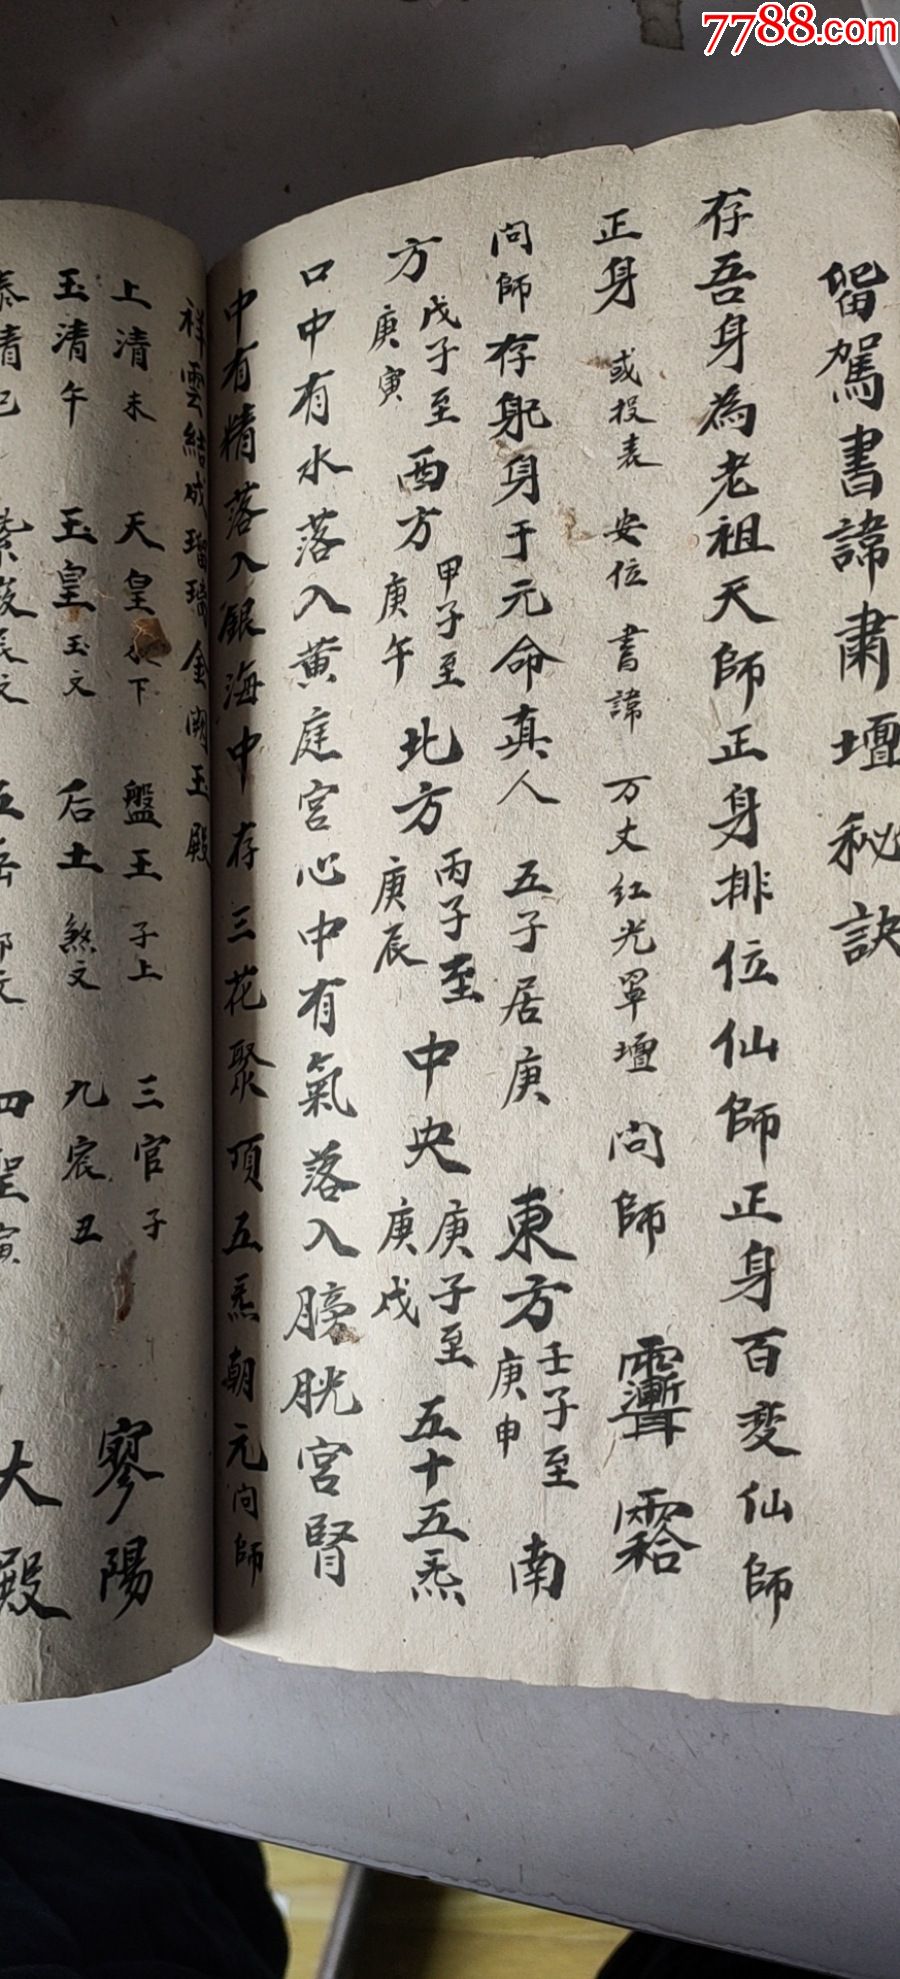 7788.com
留駕書諱肅壇秘訣
存吾身為老祖天師正身排位仙師正身百变仙師
正身 或投表 安位 書諱 万丈红光罩壇 问師
问師存躬身于元命真人 五子居庚 東方壬子至庚申 南
方戊子至庚寅 西方甲子至庚午 北方丙子至庚辰 中央庚子至庚戌 五十五炁
口中有水落入黄庭宫心中有氣落入膀胱宫腎
中有精落入銀海中 存三花聚頂五炁朝元问師
祥雲結成 金闕玉殿
上清未 天皇 下 盤王子上 三官子 寥陽
玉清午 玉皇玉文 后土煞文 九宸丑 大殿
泰清巳 紫 辰文 五岳 文 四聖寅